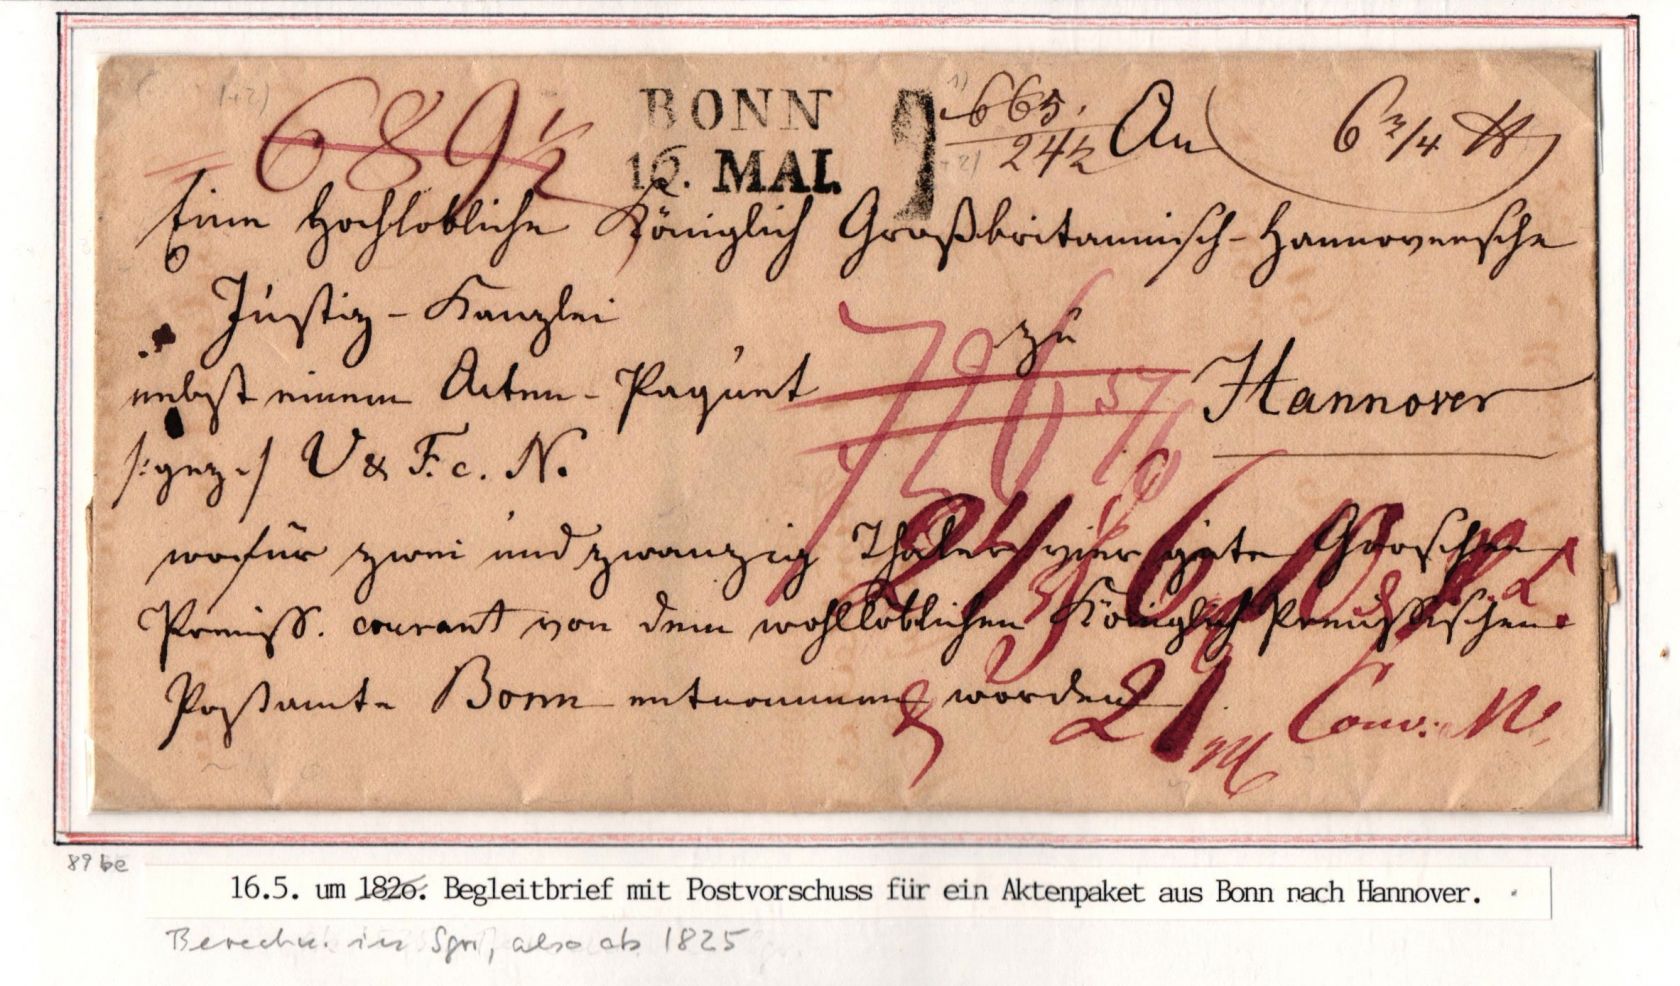 689½ BONN 665. An 6 3/4 ℔
16. MAI. 24½
Eine Hochlöbliche Königlich Großbritannisch-Hannoversche
Justiz-Kanzlei
zu
nebst einem Acten-Paquet Hannover
/:gez.:/ V & F. c. N.
wofür zwei und zwanzig Thaler vier gute Groschen
Preuss. courant von dem wohllöblichen Königlich Preußischen
Postamte Bonn entnommen worden.
21 Conv: M.
89 be
16.5. um 1820. Begleitbrief mit Postvorschuss für ein Aktenpaket aus Bonn nach Hannover.
Berechn. in Sgr, also ab 1825